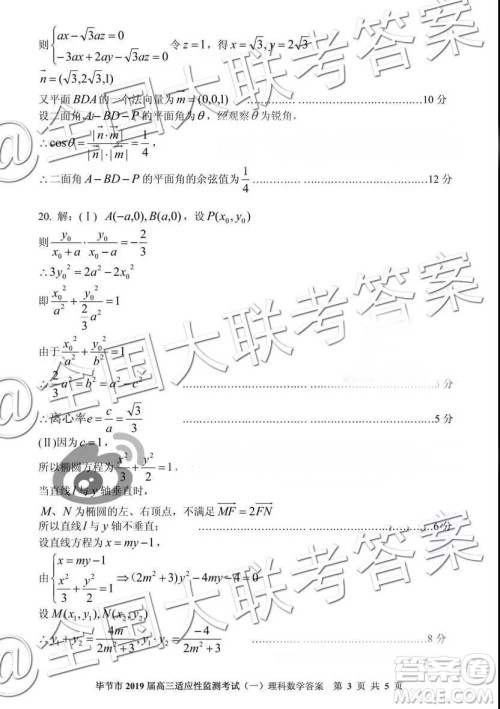 则{ax-√3az=0
-3ax+2ay-√3az=0 令z=1，得x=√3,y=2√3
n=(√3,2√3,1)
又平面BDA的一个法向量为m=(0,0,1) 10分
设二面角A-BD-P的平面角为θ，经观察θ为锐角，
∴cosθ=|n·m|/|n|·|m|=1/4，
∴二面角A-BD-P的平面角的余弦值为1/4 12分
20. 解：(Ⅰ) A(-a,0),B(a,0)，设P(x₀,y₀)
则 y₀/(x₀+a)·y₀/(x₀-a)=-2/3
∴3y₀²=2a²-2x₀²
即x₀²/a²+y₀²/(2/3 a²)=1
由于x₀²/a²+y₀²/b²=1
∴2/3 a²=b²=a²-c² 3分
∴离心率e=c/a=√3/3 5分
(Ⅱ)因为c=1，
所以椭圆方程为x²/3+y²/2=1，
当直线l与y轴垂直时，
M、N为椭圆的左、右顶点，不满足MF=2FN
所以直线l与y轴不垂直； 6分
设直线方程为x=my-1，
由{x=my-1
x²/3+y²/2=1 ⇒(2m²+3)y²-4my-4=0
设M(x₁,y₁),N(x₂,y₂)
∴y₁+y₂=4m/(2m²+3),y₁y₂=-4/(2m²+3) 8分
毕节市2019届高三适应性监测考试（一）理科数学答案 第3页 共5页
@全国大联考答案
@全国大联考答案
@全国大联考答案